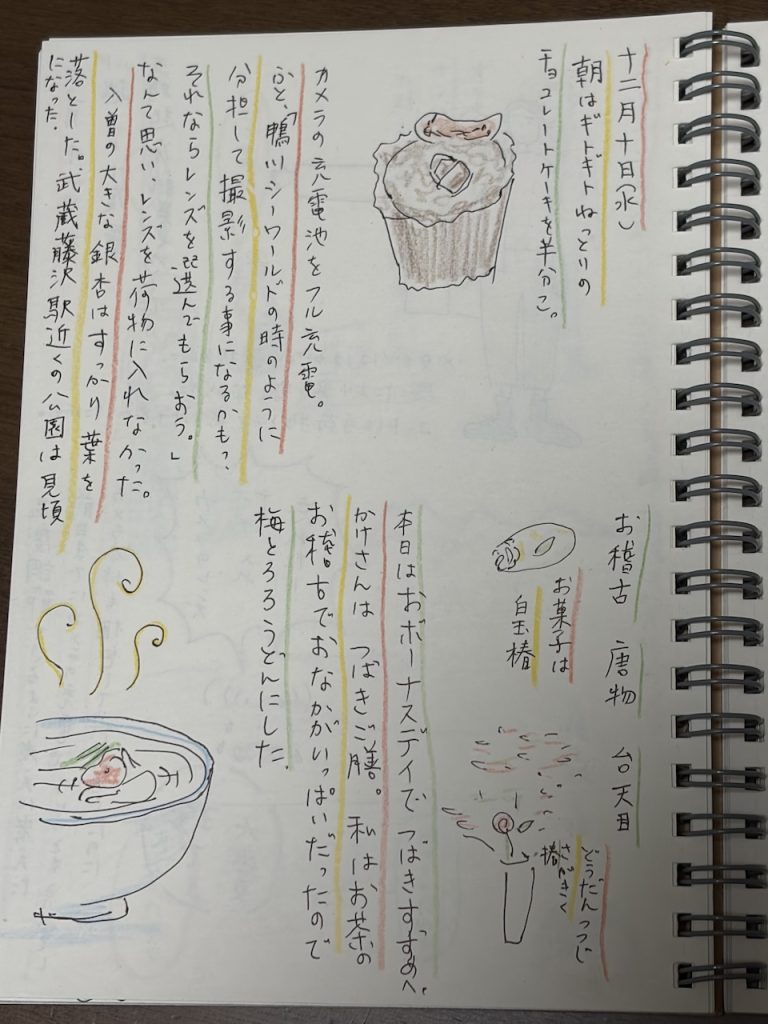 十二月十日(水)
朝はギトギトねっとりの
チョコレートケーキを半分こ。
カメラの充電池をフル充電。
ふと、「鴨川シーワールドの時のように
分担して撮影する事になるかも?
それならレンズを選んでもらおう。」
なんて思い、レンズを荷物に入れなかった。
入曽の大きな銀杏はすっかり葉を
落とした。武蔵藤沢駅近くの公園は見頃
になった。
お稽古 唐物 台天目
お菓子は
白玉椿
どうだんつつじ
さざぎく
椿
本日はおボーナスデイでつばきすずめへ。
かけさんはつばきご膳。私はお茶の
お稽古でおなかがいっぱいだったので
梅とろろうどんにした。